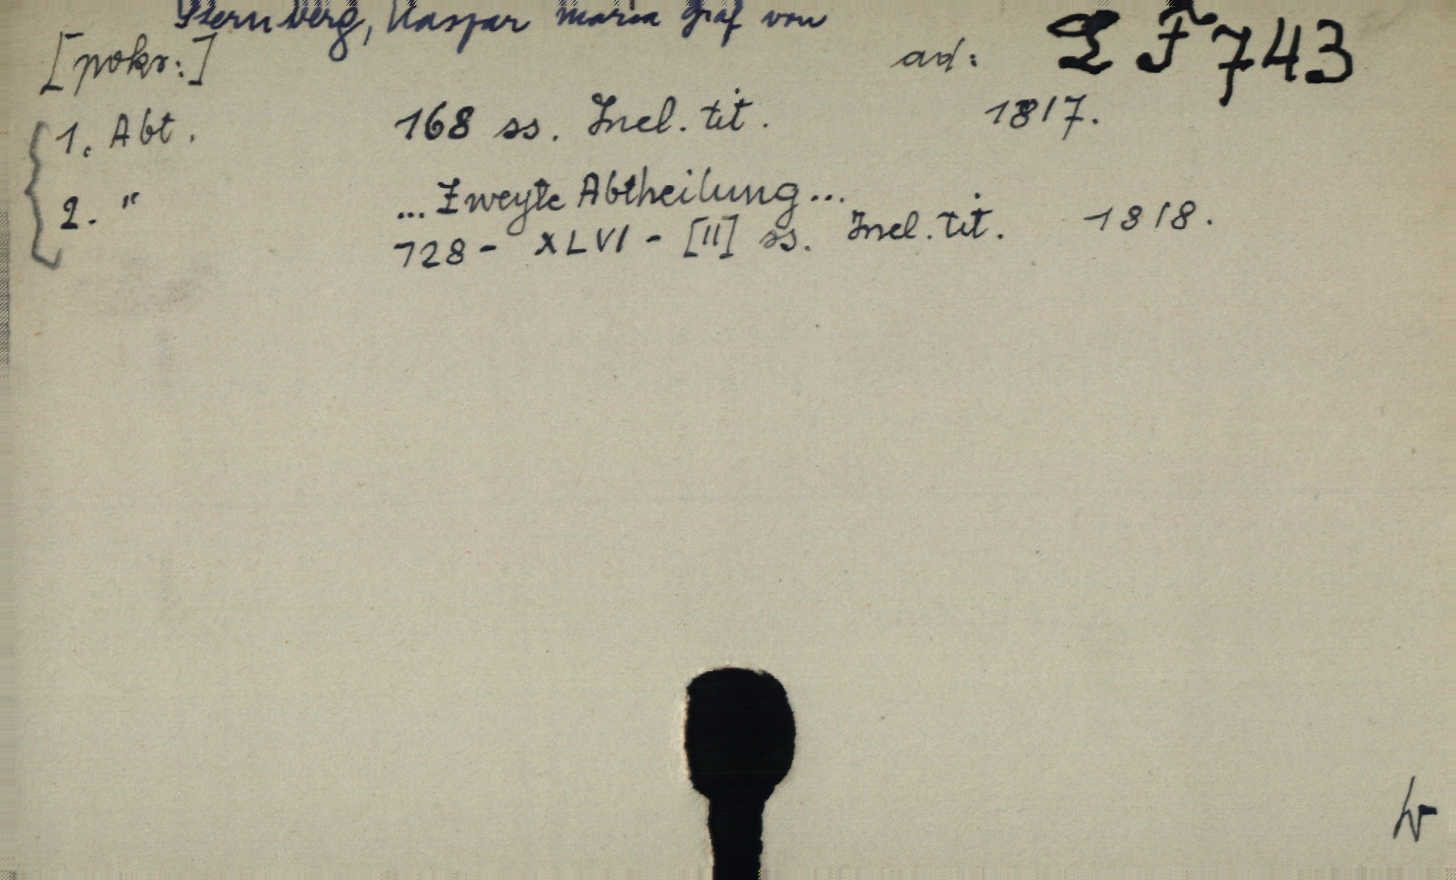 Sternberg, Kaspar Maria Graf von
[pokr:] ad: 2 F 743
1. Abt. 168 ss. Incl. tit. 1817.
2. " ... Zweyte Abtheilung ...
728 - XLVI - [II] ss. Incl. tit. 1818.